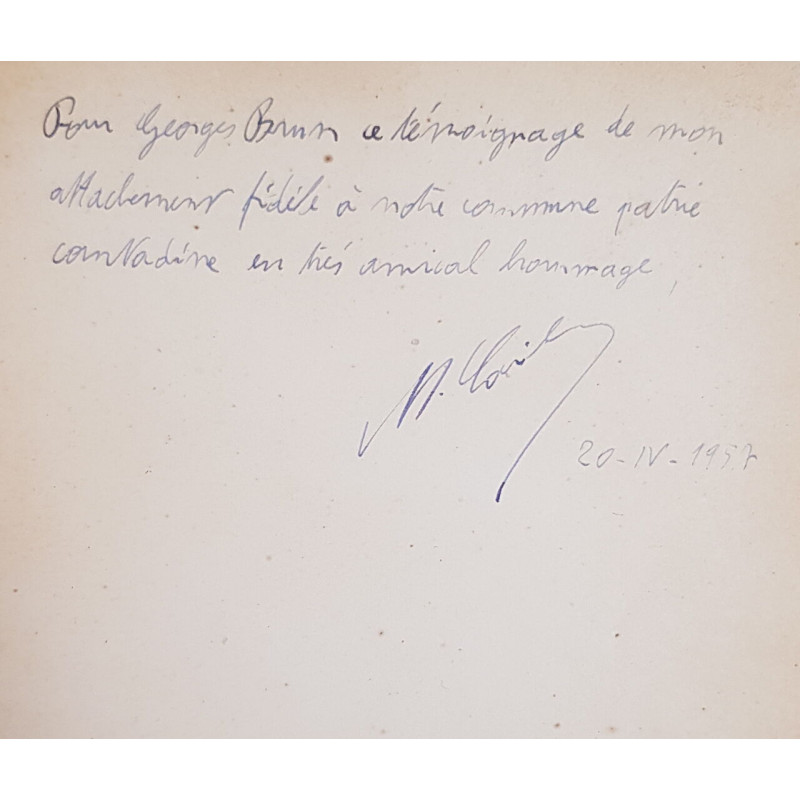 Pour Georges Brun ce témoignage de mon
attachement fidèle à notre commune patrie
comtadine en très amical hommage,
20-IV-1957